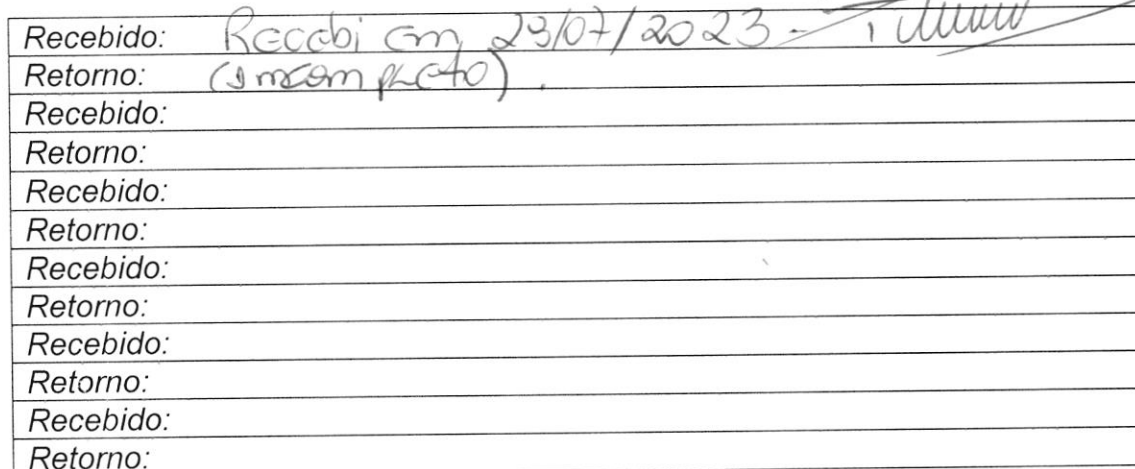 Recebido: Recebi em 29/07/2023 -
Retorno: (Imcompleto).
Recebido:
Retorno:
Recebido:
Retorno:
Recebido:
Retorno:
Recebido:
Retorno:
Recebido:
Retorno: